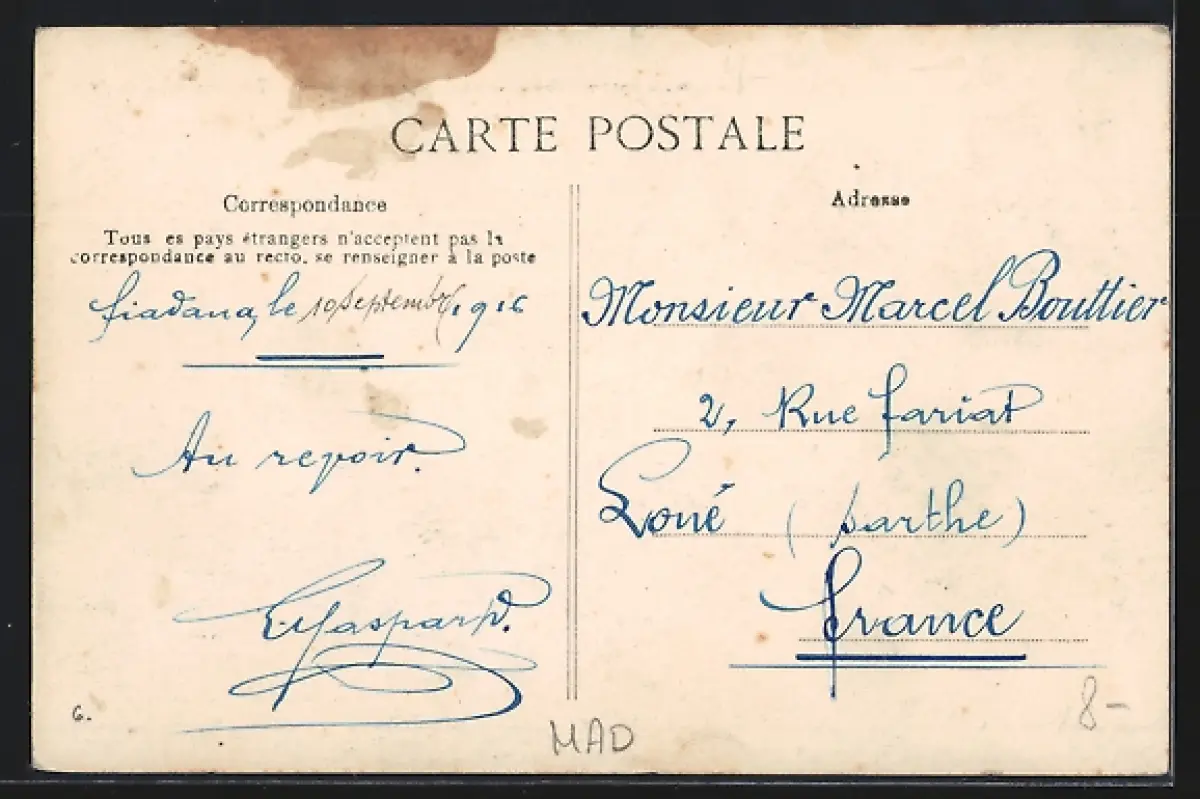 CARTE POSTALE
Correspondance
Tous es pays étrangers n'acceptent pas la
correspondance au recto, se renseigner à la poste
fiadana, le 10 septembre 1916
Au revoir.
E. Gaspard.
6.
Adresse
Monsieur Marcel Bouttier
2, Rue fariat
Loué (sarthe)
france
MAD
8-